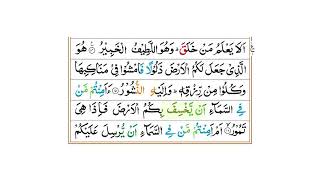 اَلَا يَعْلَمُ مَنْ خَلَقَ ؕ وَهُوَ اللَّطِيْفُ الْخَبِيْرُ ۟ هُوَ
الَّذِيْ جَعَلَ لَكُمُ الْاَرْضَ ذَلُوْلًا فَامْشُوْا فِيْ مَنَاكِبِهَا
وَكُلُوْا مِنْ رِّزْقِهٖ ؕ وَاِلَيْهِ النُّشُوْرُ ۟ ءَاَمِنْتُمْ مَّنْ
فِي السَّمَآءِ اَنْ يَّخْسِفَ بِكُمُ الْاَرْضَ فَاِذَا هِيَ
تَمُوْرُ ۟ اَمْ اَمِنْتُمْ مَّنْ فِي السَّمَآءِ اَنْ يُّرْسِلَ عَلَيْكُمْ